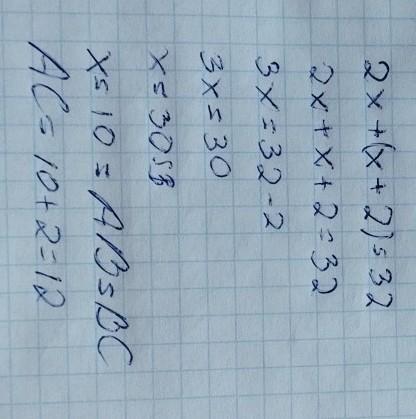 2x+(x+2)=32
2x+x+2=32
3x=32-2
3x=30
x=30:3
x=10=AB=BC
AC=10+2=12